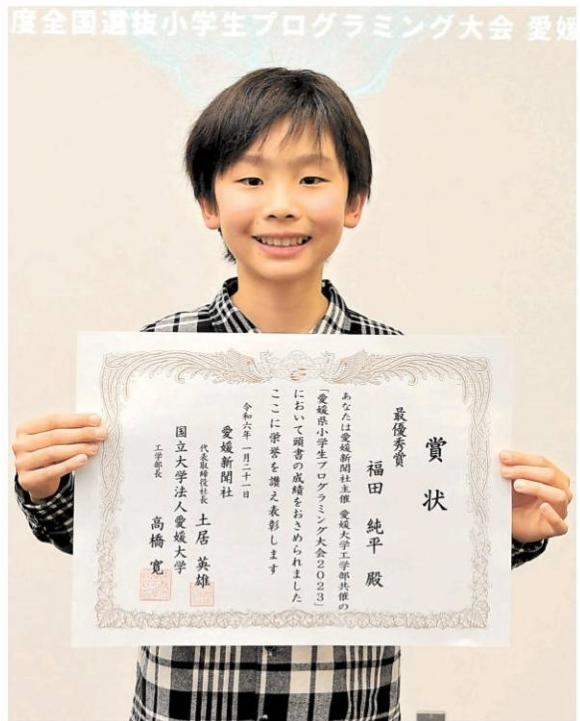 度全国選抜小学生プログラミング大会 愛媛
賞状
最優秀賞
福田 純平 殿
あなたは愛媛新聞社主催 愛媛大学工学部共催の
「愛媛県小学生プログラミング大会2023」
において頭書の成績をおさめられました
ここに栄誉を讃え表彰します
令和六年一月二十一日
愛媛新聞社
代表取締役社長 土居 英雄
国立大学法人愛媛大学
工学部長 高橋 寛